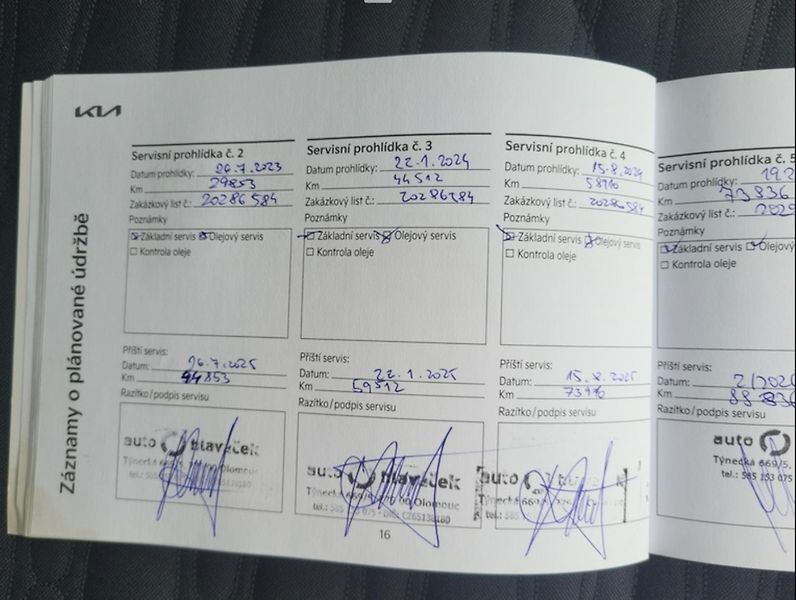 KIA
Záznamy o plánované údržbě
Servisní prohlídka č. 2
Datum prohlídky: 26.7.2023
Km 29853
Zakázkový list č.: 20286584
Poznámky
Základní servis Olejový servis
Kontrola oleje
Příští servis:
Datum: 26.7.2025
Km 44853
Razítko/podpis servisu
auto hlaváček
Týnecká Olomouc
tel.: 585
Servisní prohlídka č. 3
Datum prohlídky: 22.1.2024
Km 44512
Zakázkový list č.:
Poznámky
Základní servis Olejový servis
Kontrola oleje
Příští servis:
Datum: 22.1.2025
Km 59512
Razítko/podpis servisu
auto hlaváček
Týnecká 669/5, 779 00 Olomouc
tel.: 585 153 075
16
Servisní prohlídka č. 4
Datum prohlídky: 15.8.2024
Km
Zakázkový list č.: 20286584
Poznámky
Základní servis Olejový servis
Kontrola oleje
Příští servis:
Datum: 15.8.2025
Km
Razítko/podpis servisu
auto
Týnecká
tel.:
Servisní prohlídka č. 5
Datum prohlídky: 19.2
Km 73836
Zakázkový list č.:
Poznámky
Základní servis Olejový
Kontrola oleje
Příští servis:
Datum: 2/202
Km 88836
Razítko/podpis servisu
auto
Týnecká 669/5,
tel.: 585 153 075